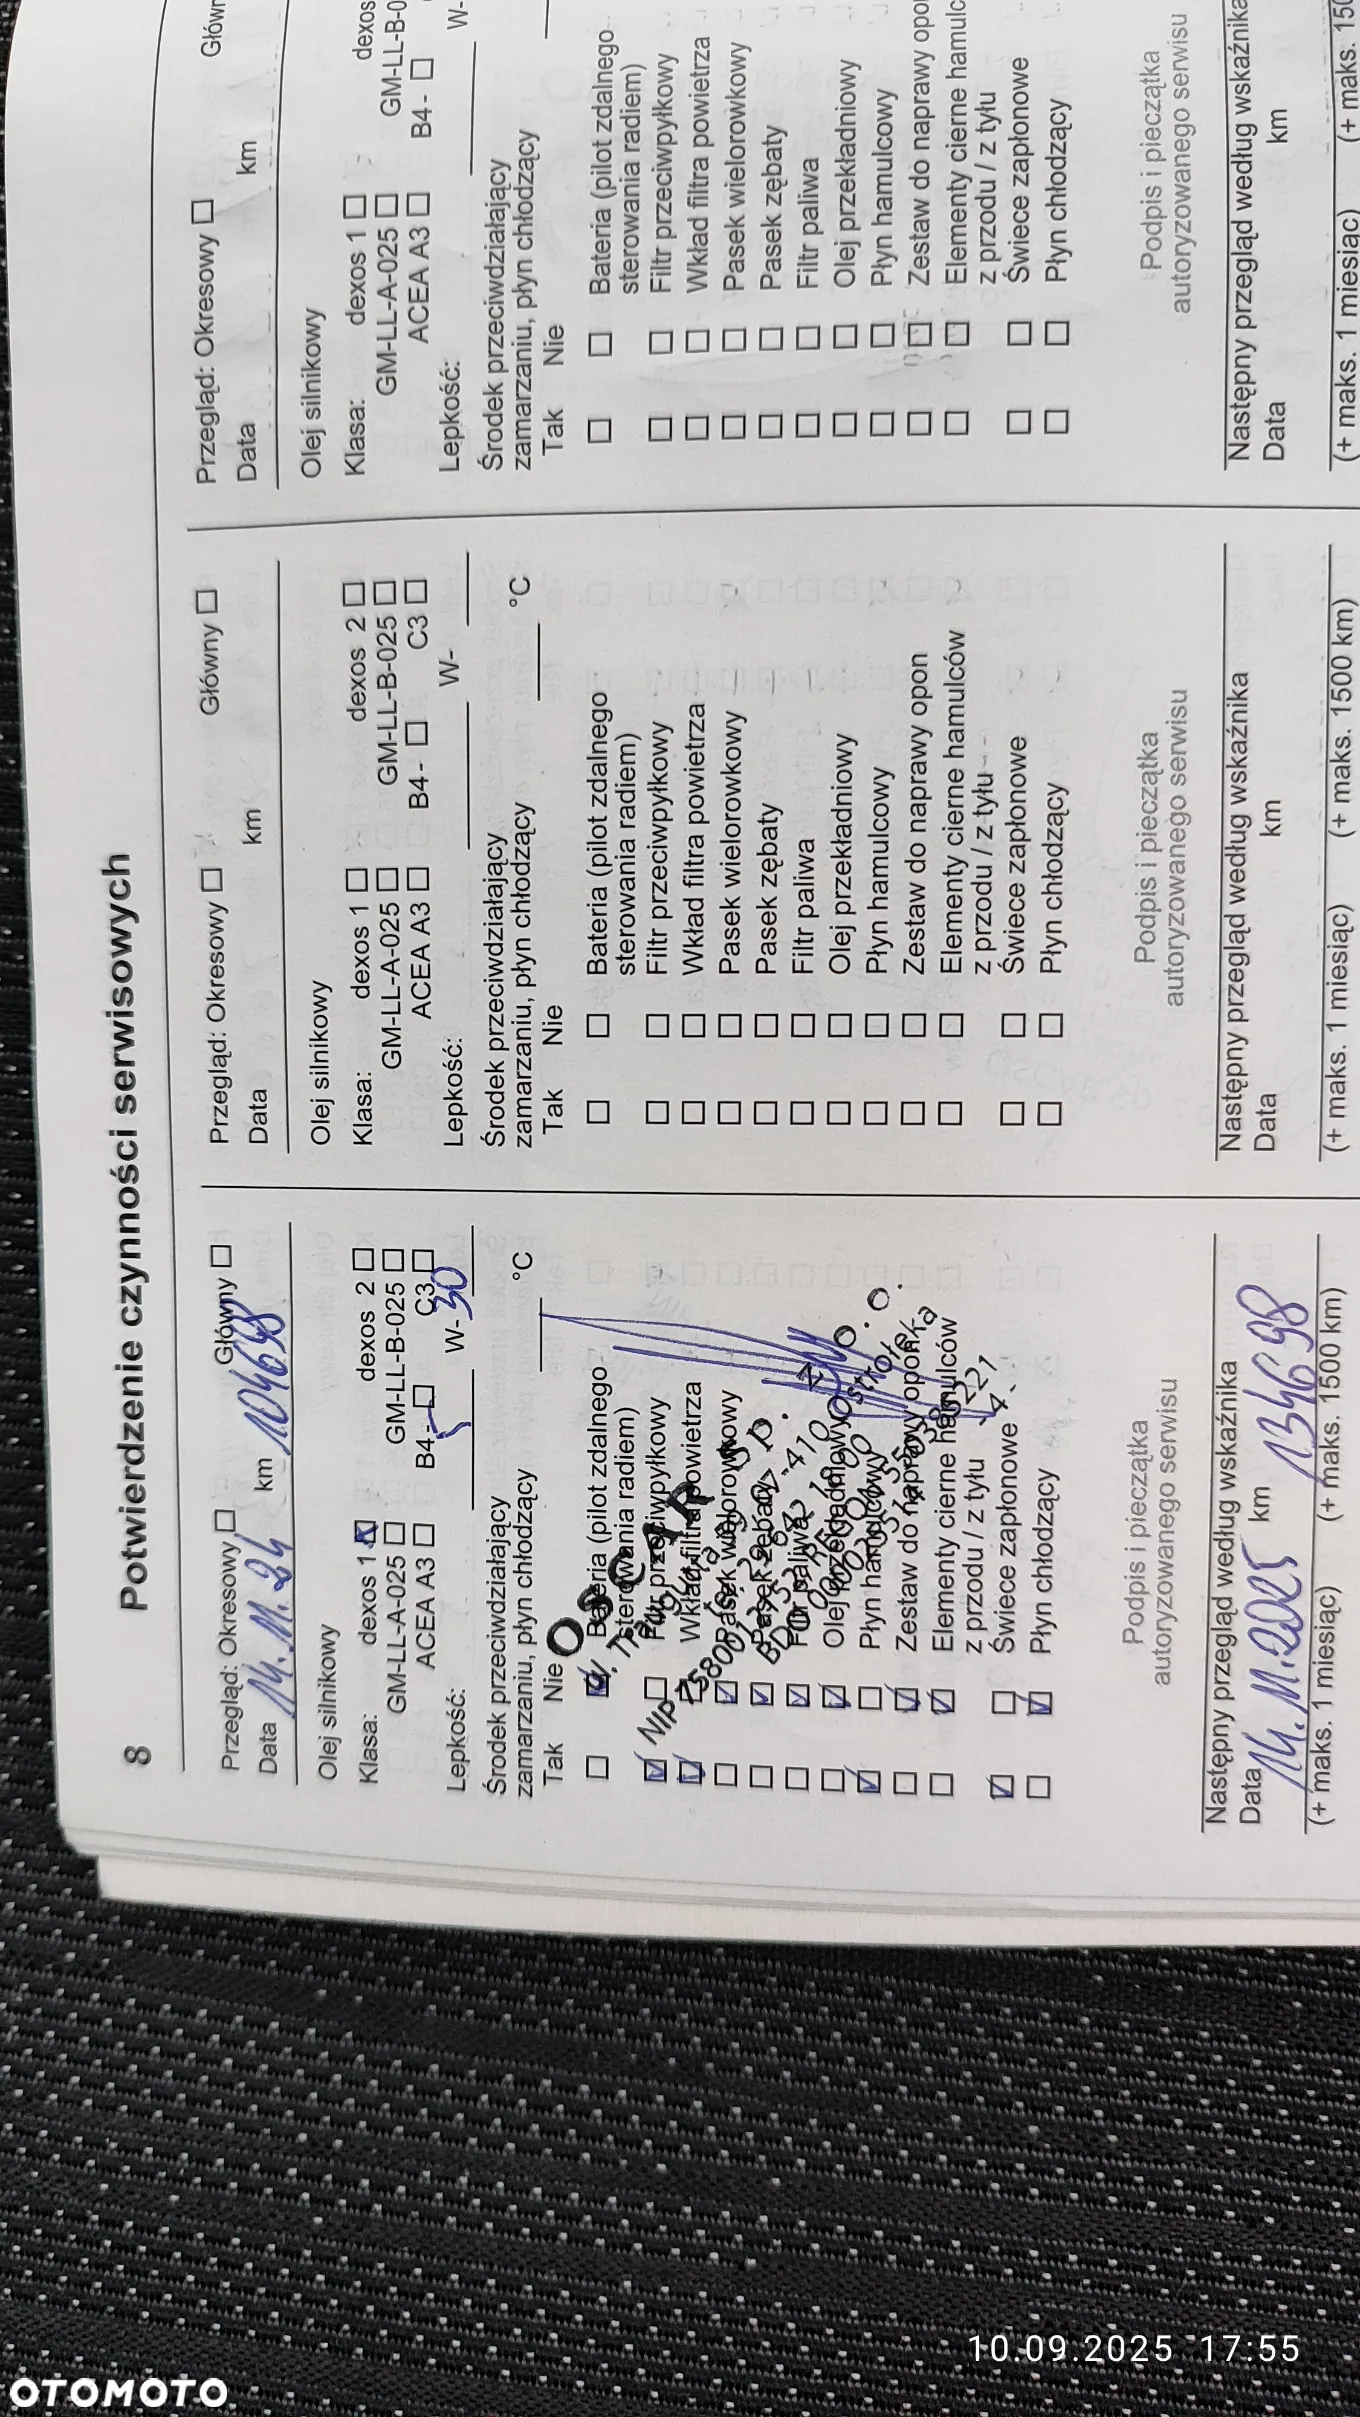 8 Potwierdzenie czynności serwisowych
Przegląd: Okresowy Główny
Data 14.11.24 km 104698
Olej silnikowy
Klasa: dexos 1 dexos 2
GM-LL-A-025 GM-LL-B-025
ACEA A3 B4 - C3
Lepkość: 5 W- 30
Środek przeciwdziałający
zamarzaniu, płyn chłodzący °C
Tak Nie
Bateria (pilot zdalnego
sterowania radiem)
Filtr przeciwpyłkowy
Wkład filtra powietrza
Pasek wielorowkowy
Pasek zębaty
Filtr paliwa
Olej przekładniowy
Płyn hamulcowy
Zestaw do naprawy opon
Elementy cierne hamulców
z przodu / z tyłu
Świece zapłonowe
Płyn chłodzący
NIP
Podpis i pieczątka
autoryzowanego serwisu
Następny przegląd według wskaźnika
Data 14.11.2025 km 134698
(+ maks. 1 miesiąc) (+ maks. 1500 km)
Przegląd: Okresowy Główny
Data km
Olej silnikowy
Klasa: dexos 1 dexos 2
GM-LL-A-025 GM-LL-B-025
ACEA A3 B4 - C3
Lepkość: W-
Środek przeciwdziałający
zamarzaniu, płyn chłodzący °C
Tak Nie
Bateria (pilot zdalnego
sterowania radiem)
Filtr przeciwpyłkowy
Wkład filtra powietrza
Pasek wielorowkowy
Pasek zębaty
Filtr paliwa
Olej przekładniowy
Płyn hamulcowy
Zestaw do naprawy opon
Elementy cierne hamulców
z przodu / z tyłu
Świece zapłonowe
Płyn chłodzący
Podpis i pieczątka
autoryzowanego serwisu
Następny przegląd według wskaźnika
Data km
(+ maks. 1 miesiąc) (+ maks. 1500 km)
Przegląd: Okresowy Główn
Data km
Olej silnikowy
Klasa: dexos 1 dexos
GM-LL-A-025 GM-LL-B-0
ACEA A3 B4 -
Lepkość: W-
Środek przeciwdziałający
zamarzaniu, płyn chłodzący
Tak Nie
Bateria (pilot zdalnego
sterowania radiem)
Filtr przeciwpyłkowy
Wkład filtra powietrza
Pasek wielorowkowy
Pasek zębaty
Filtr paliwa
Olej przekładniowy
Płyn hamulcowy
Zestaw do naprawy opon
Elementy cierne hamulc
z przodu / z tyłu
Świece zapłonowe
Płyn chłodzący
Podpis i pieczątka
autoryzowanego serwisu
Następny przegląd według wskaźnika
Data km
(+ maks. 1 miesiąc) (+ maks. 150
10.09.2025 17:55
OTOMOTO